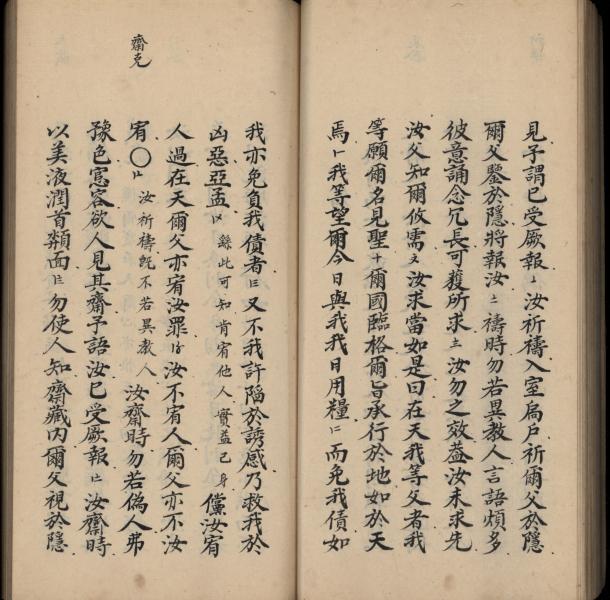 見予謂已受厥報⊥汝祈禱入室扃戶祈爾父於隱
爾父鑒於隱將報汝〧禱時勿若異教人言語煩多
彼意誦念冗長可獲所求〨汝勿之效蓋汝未求先
汝父知爾攸需〤汝求當如是曰在天我等父者我
等願爾名見聖十爾國臨格爾旨承行於地如於天
焉⺊我等望爾今日與我我日用糧〢而免我債如
我亦免負我債者〣又不我許陷於誘感乃救我於
凶惡亞孟 繇此可知肯宥他人實益己身 儻汝宥
人過在天爾父亦宥汝罪 汝不宥人爾父亦不汝
宥〇 汝祈禱旣不若異教人 汝齋時勿若偽人弗
豫色窓容欲人見其齋予語汝已受厥報 汝齋時
以美液潤首頮面 勿使人知齋藏內爾父視於隱
齋克